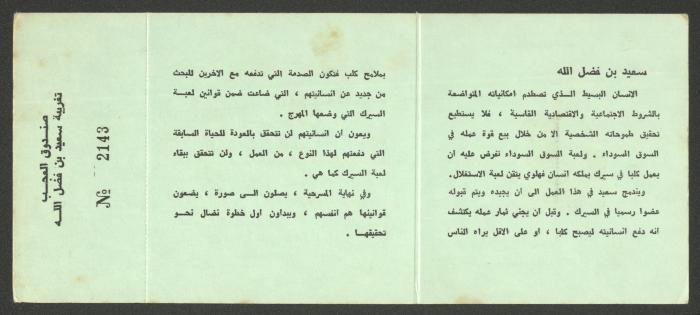 سعيد بن فضل الله
الانسان البسيط الذي تصطدم امكانياته المتواضعة
بالشروط الاجتماعية والاقتصادية القاسية ، فلا يستطيع
تحقيق طموحاته الشخصية الا من خلال بيع قوة عمله في
السوق السوداء . ولعبة السوق السوداء تفرض عليه ان
يعمل كلبا في سيرك يملكه انسان فهلوي يتقن لعبة الاستغلال.
ويندمج سعيد في هذا العمل الى ان يجيده ويتم قبوله
عضوا رسميا في السيرك . وقبل ان يجني ثمار عمله يكتشف
انه دفع انسانيته ليصبح كلبا ، او على الاقل يراه الناس
بملامح كلب فتكون الصدمة التي تدفعه مع الاخرين للبحث
من جديد عن انسانيتهم ، التي ضاعت ضمن قوانين لعبة
السيرك التي وضعها المهرج .
ويعون ان انسانيتهم لن تتحقق بالعودة للحياة السابقة
التي دفعتهم لهذا النوع ، من العمل ، ولن تتحقق ببقاء
لعبة السيرك كما هي .
وفي نهاية المسرحية ، يصلون الى صورة ، يضعون
قوانينها هم انفسهم ، ويبداون اول خطوة نضال نحو
تحقيقها .
صندوق العجب
تغريبة سعيد بن فضل الله
№ 2143